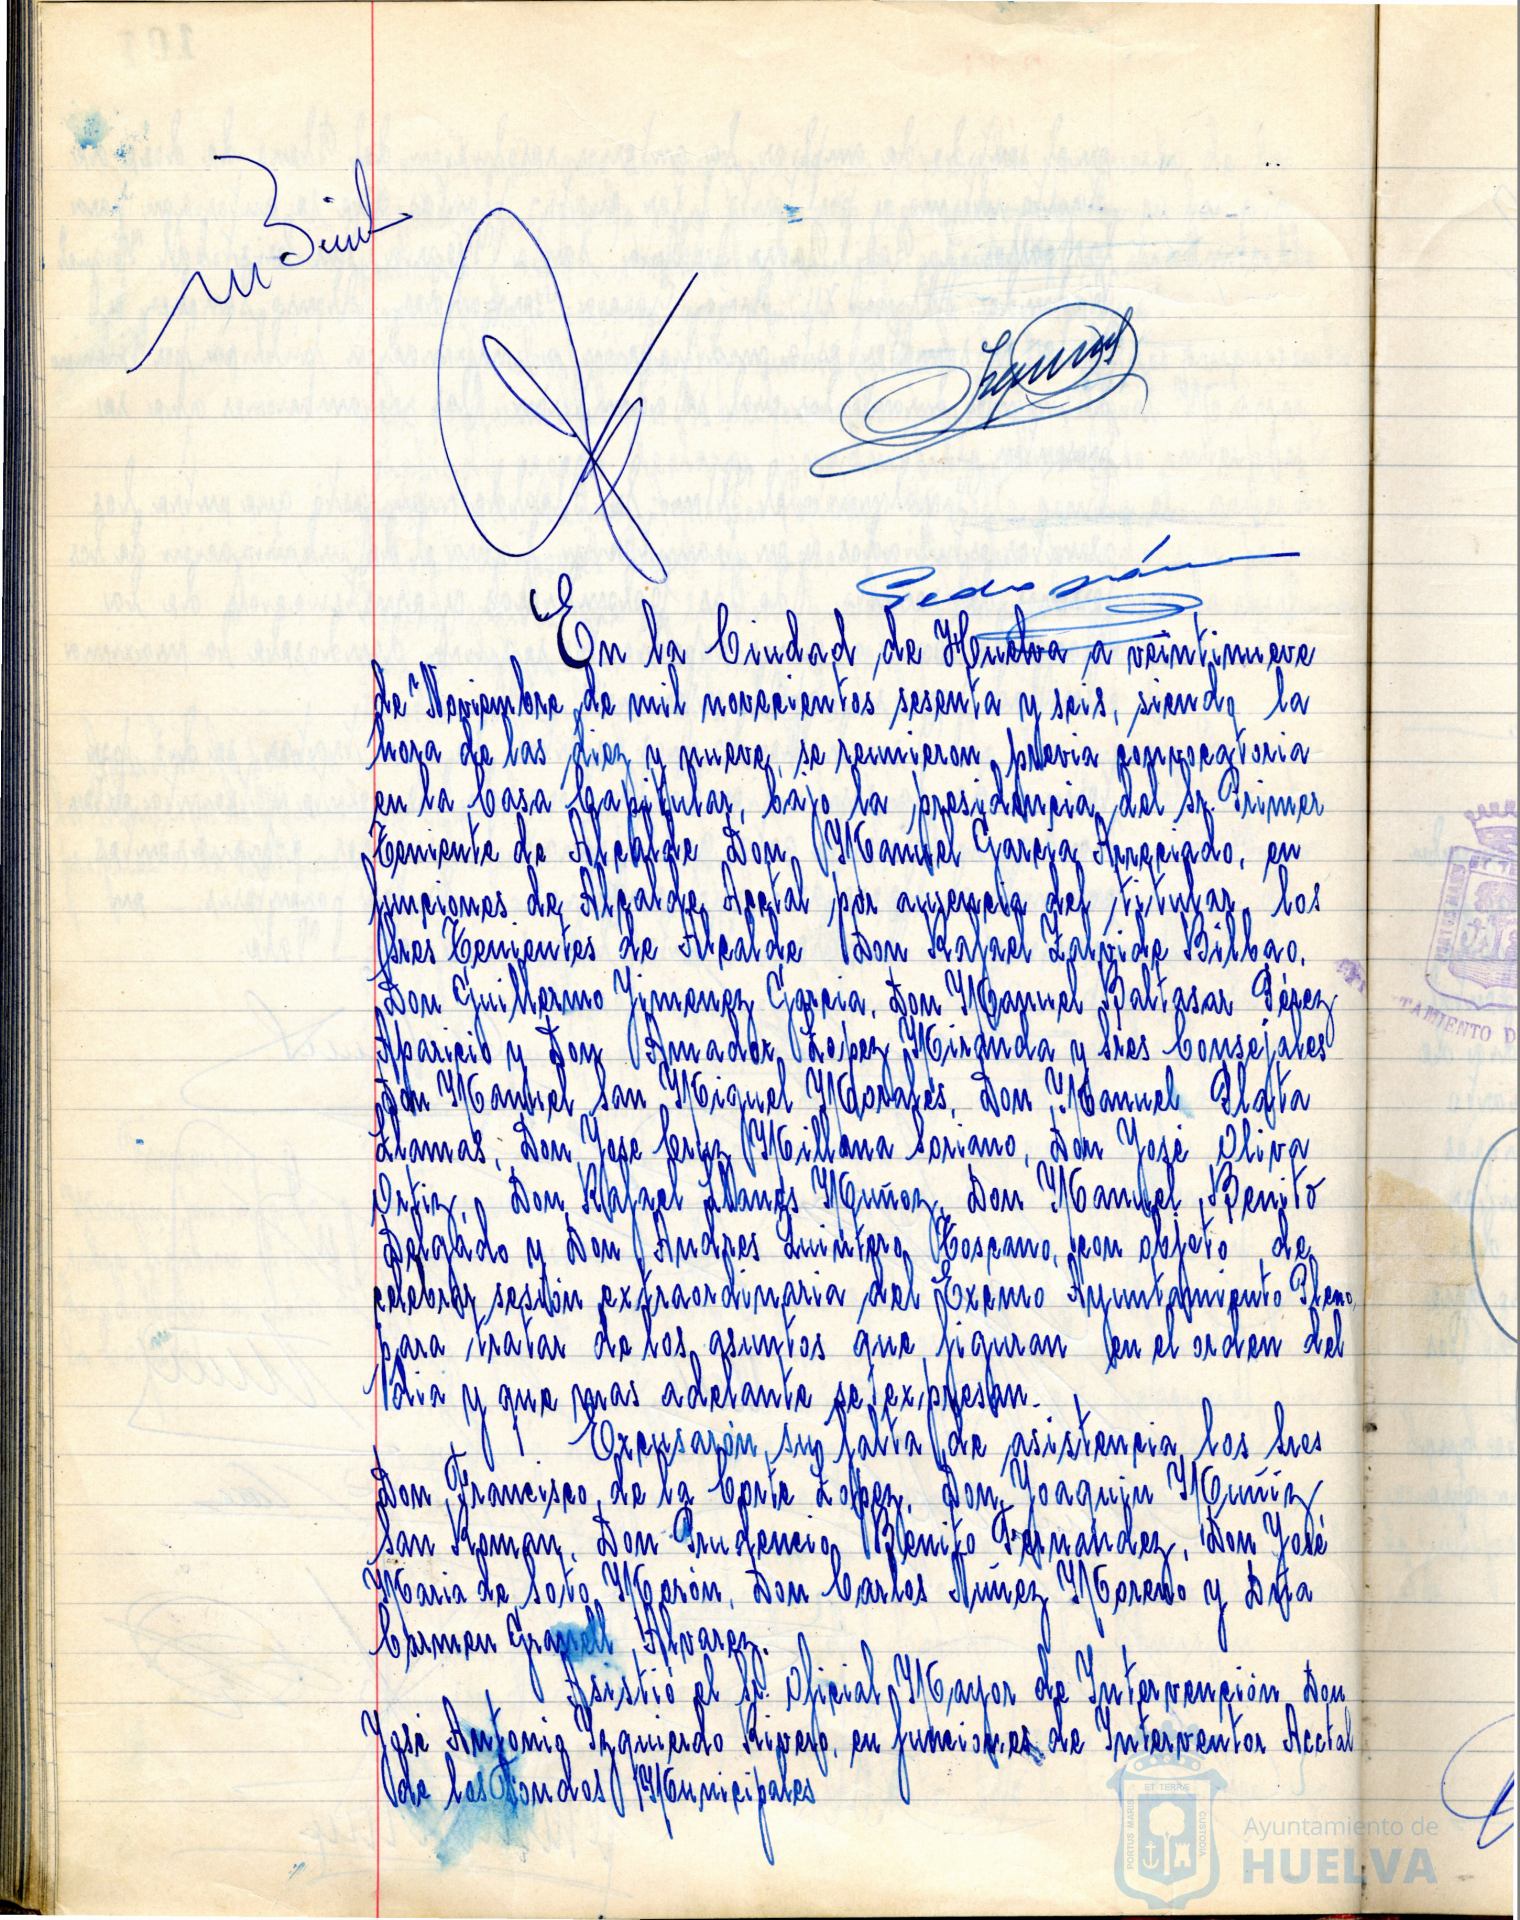 En la Ciudad de Huelva a veintinueve
de Noviembre de mil novecientos sesenta y seis, siendo la
hora de las diez y nueve, se reunieron previa convocatoria
en la Casa Capitular, bajo la presidencia del Sr. Primer
Teniente de Alcalde Don Manuel Garcia Arreciado, en
funciones de Alcalde Acctal por ausencia del titular, los
Sres Tenientes de Alcalde Don Rafael Zalvide Bilbao,
Don Guillermo Jimenez Garcia, Don Manuel Baltasar Pérez
Aparicio y Don Amador Lopez Miranda y Sres Consejales
Don Manuel San Miguel Morales, Don Manuel Plata
Llamas, Don Jose Cruz Millana Soriano, Don José Oliva
Ortiz, Don Rafael Llanes Muñoz, Don Manuel Benito
Delgado y Don Andres Quintero Toscano, con objeto de
celebrar sesión extraordinaria del Excmo Ayuntamiento Pleno,
para tratar de los asuntos que figuran en el orden del
dia y que mas adelante se expresan.
Excusarón su falta de asistencia los Sres
Don Francisco de la Corte Lopez, Don Joaquin Muñiz
San Roman, Don Prudencio Benito Fernández, Don José
Maria de Soto Morón, Don Carlos Núñez Moreno y Dña
Carmen Granell Alvarez.
Asistió el Sr. Oficial Mayor de Intervención Don
José Antonio Izquierdo Rivero, en funciones de Interventor Acctal
de los Fondos Municipales
ET TERRÆ
PORTUS MARIS
CUSTODIA
Ayuntamiento de
HUELVA